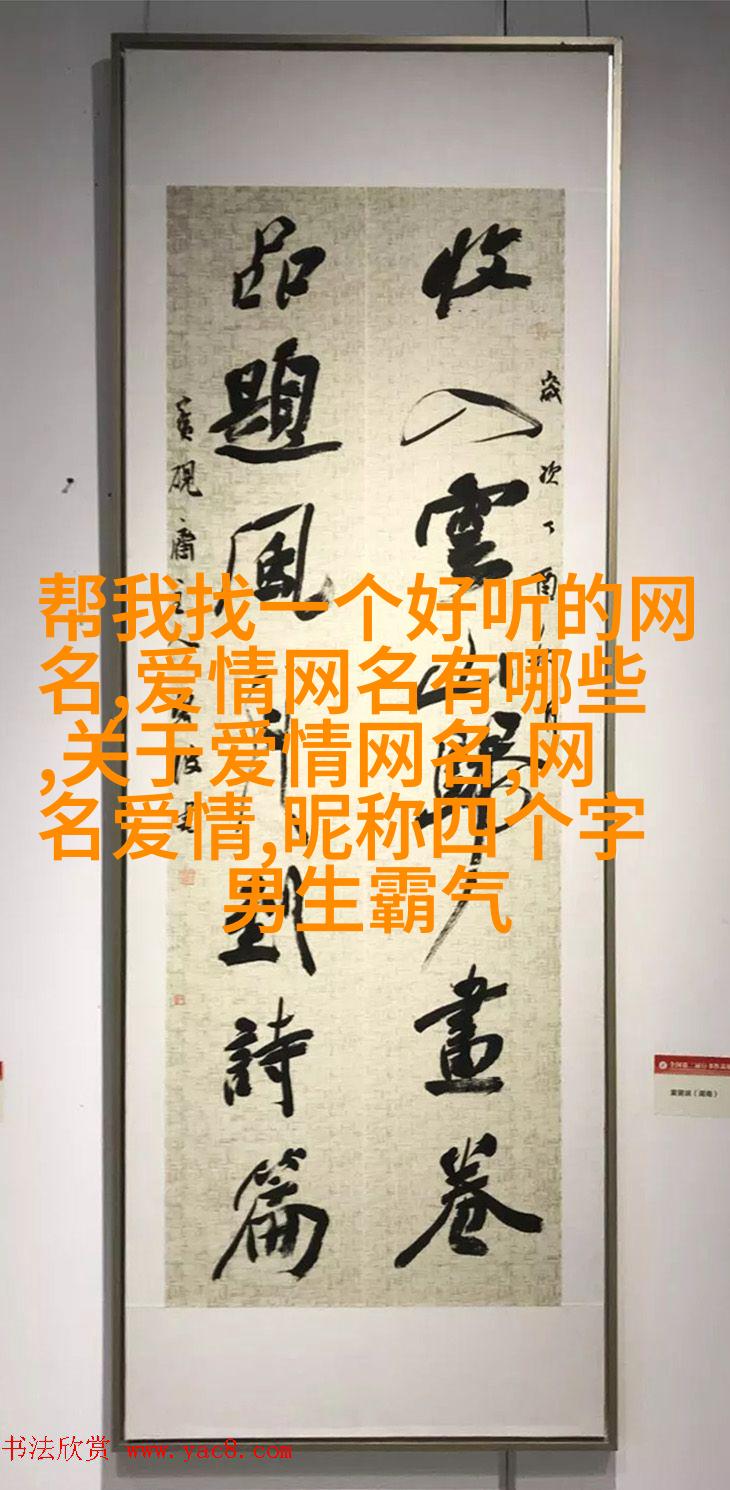 收入雲山歸畫卷
歲次丁酉
品題風月到詩篇
硯齋
帮我找一个好听的网
名,爱情网名有哪些
,关于爱情网名,网
名爱情,昵称四个字
男生霸气
书法欣赏 www.yac8.com